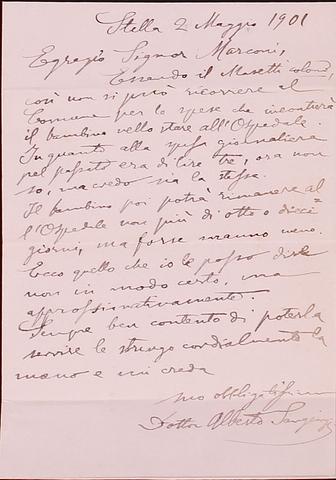 Stella 2 Maggio 1901
Egregio Signor Marconi,
Essendo il Masetti colono,
così non si può ricorrere al
Comune per le spese che incontrerà
il bambino nello stare all'Ospedale.
In quanto alla spesa giornaliera
pel passato era di lire tre, ora non
so, ma credo sia la stessa.
Il bambino poi potrà rimanere al
l'Ospedale non più di otto o dieci
giorni, ma forse meno.
Ecco quello che io le posso dire
non in modo certo, ma
approssimativamente.
Sempre ben contento di poterla
servire le stringo cordialmente la
mano e mi creda
suo obbligatissimo
Dottor Alberto